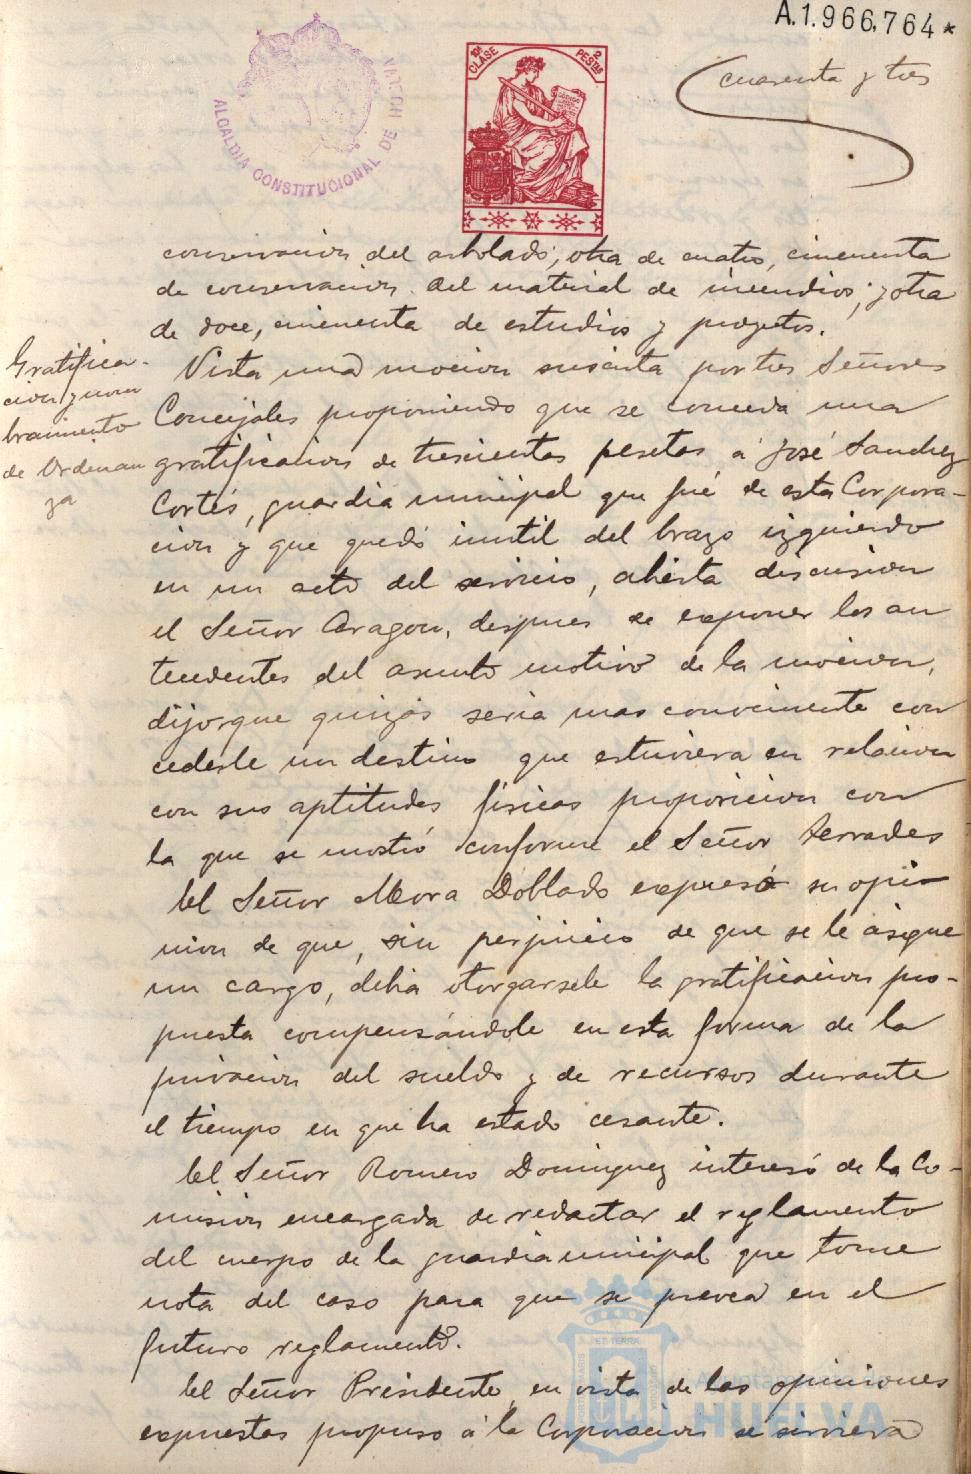 A.1.966,764*
ALCALDIA CONSTITUCIONAL DE HUELVA
10ª CLASE
2 PESTAS
cuarenta y tres
conservacion del arbolado; otra de cuatro, cincuenta
de conservacion del material de incendios; y otra
de doce, cincuenta de estudios y proyectos.
Gratifica-
cion y nom
bramiento
de Ordenan
za
Vista una mocion suscrita por tres Señores
Concejales proponiendo que se conceda una
gratificacion de trescientas pesetas á José Sanchez
Cortés, guardia municipal que fué de esta Corpora-
cion y que quedó inutil del brazo izquierdo
en un acto del servicio, abierta discusion
el Señor Aragon, despues de exponer los an
tecedentes del asunto motivo de la mocion,
dijo que quizás seria mas conveniente con
cederle un destino que estuviera en relacion
con sus aptitudes físicas proposicion con
la que se mostró conforme el Señor Terrades
El Señor Mora Doblado expresó su opi-
nion de que, sin perjuicio de que se le asigne
un cargo, debia otorgarsele la gratificacion pro-
puesta compensándole en esta forma de la
privacion del sueldo y de recursos durante
el tiempo en que ha estado cesante.
El Señor Romero Dominguez interesó de la Co-
mision encargada de redactar el reglamento
del cuerpo de la guardia municipal que tome
nota del caso para que se prevea en el
futuro reglamento.
El Señor Presidente, en vista de las opiniones
expuestas propuso á la Corporacion se sirviera
Ayuntamiento de
HUELVA